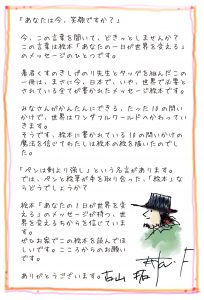 「あなたは今、笑顔ですか？」
今、この言葉を聞いて、どきっとしませんか？
この言葉は絵本「あなたの一日が世界を変える」
のメッセージのひとつです。
著者くすのきしげのり先生とタッグを組んだこの
一冊は、まさに今、日本で、いや、世界で必要と
されている全てが書かれたメッセージ絵本です。
みなさんがかんたんにできる、たった18の問い
かけで、世界はワンダフルワールドへかわってい
きます。
そうです、絵本に書かれている18の問いかけの
魔法を信じてわたしは絵本の絵を描いたのでし
た。
「ペンは剣より強し」という名言があります。
では、ペンと絵筆が手を取り合った、「絵本」な
らどうでしょうか？
絵本「あなたの1日が世界を変
える」のメッセージが持つ、世界
を変えるちからを信じていま
す。
ぜひお家でこの絵本を読んでほ
しいです。こころからのお願い
です。
ありがとうございます。石山 拓